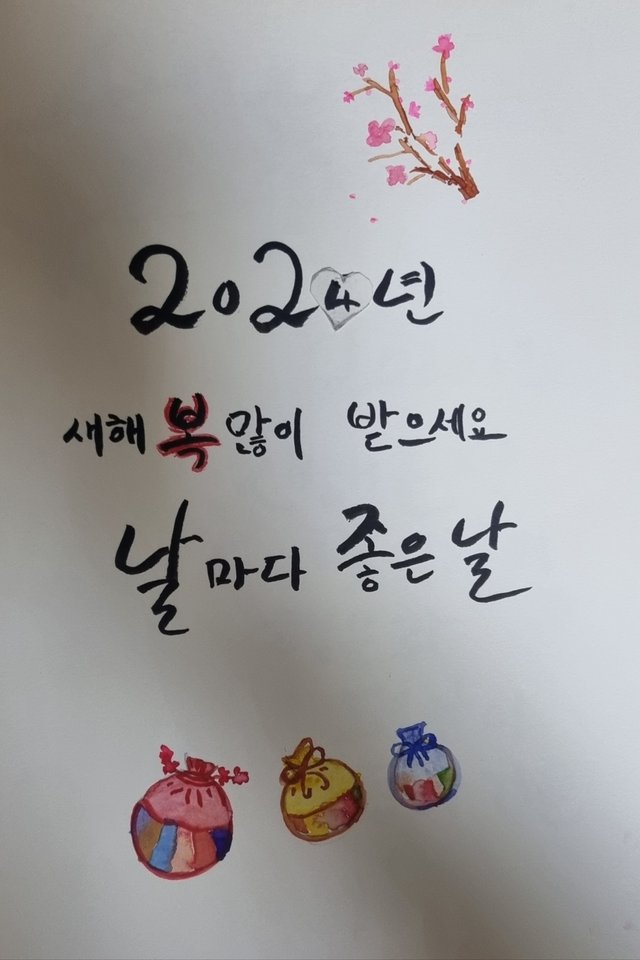 2024년
새해 복 많이 받으세요
날마다 좋은 날